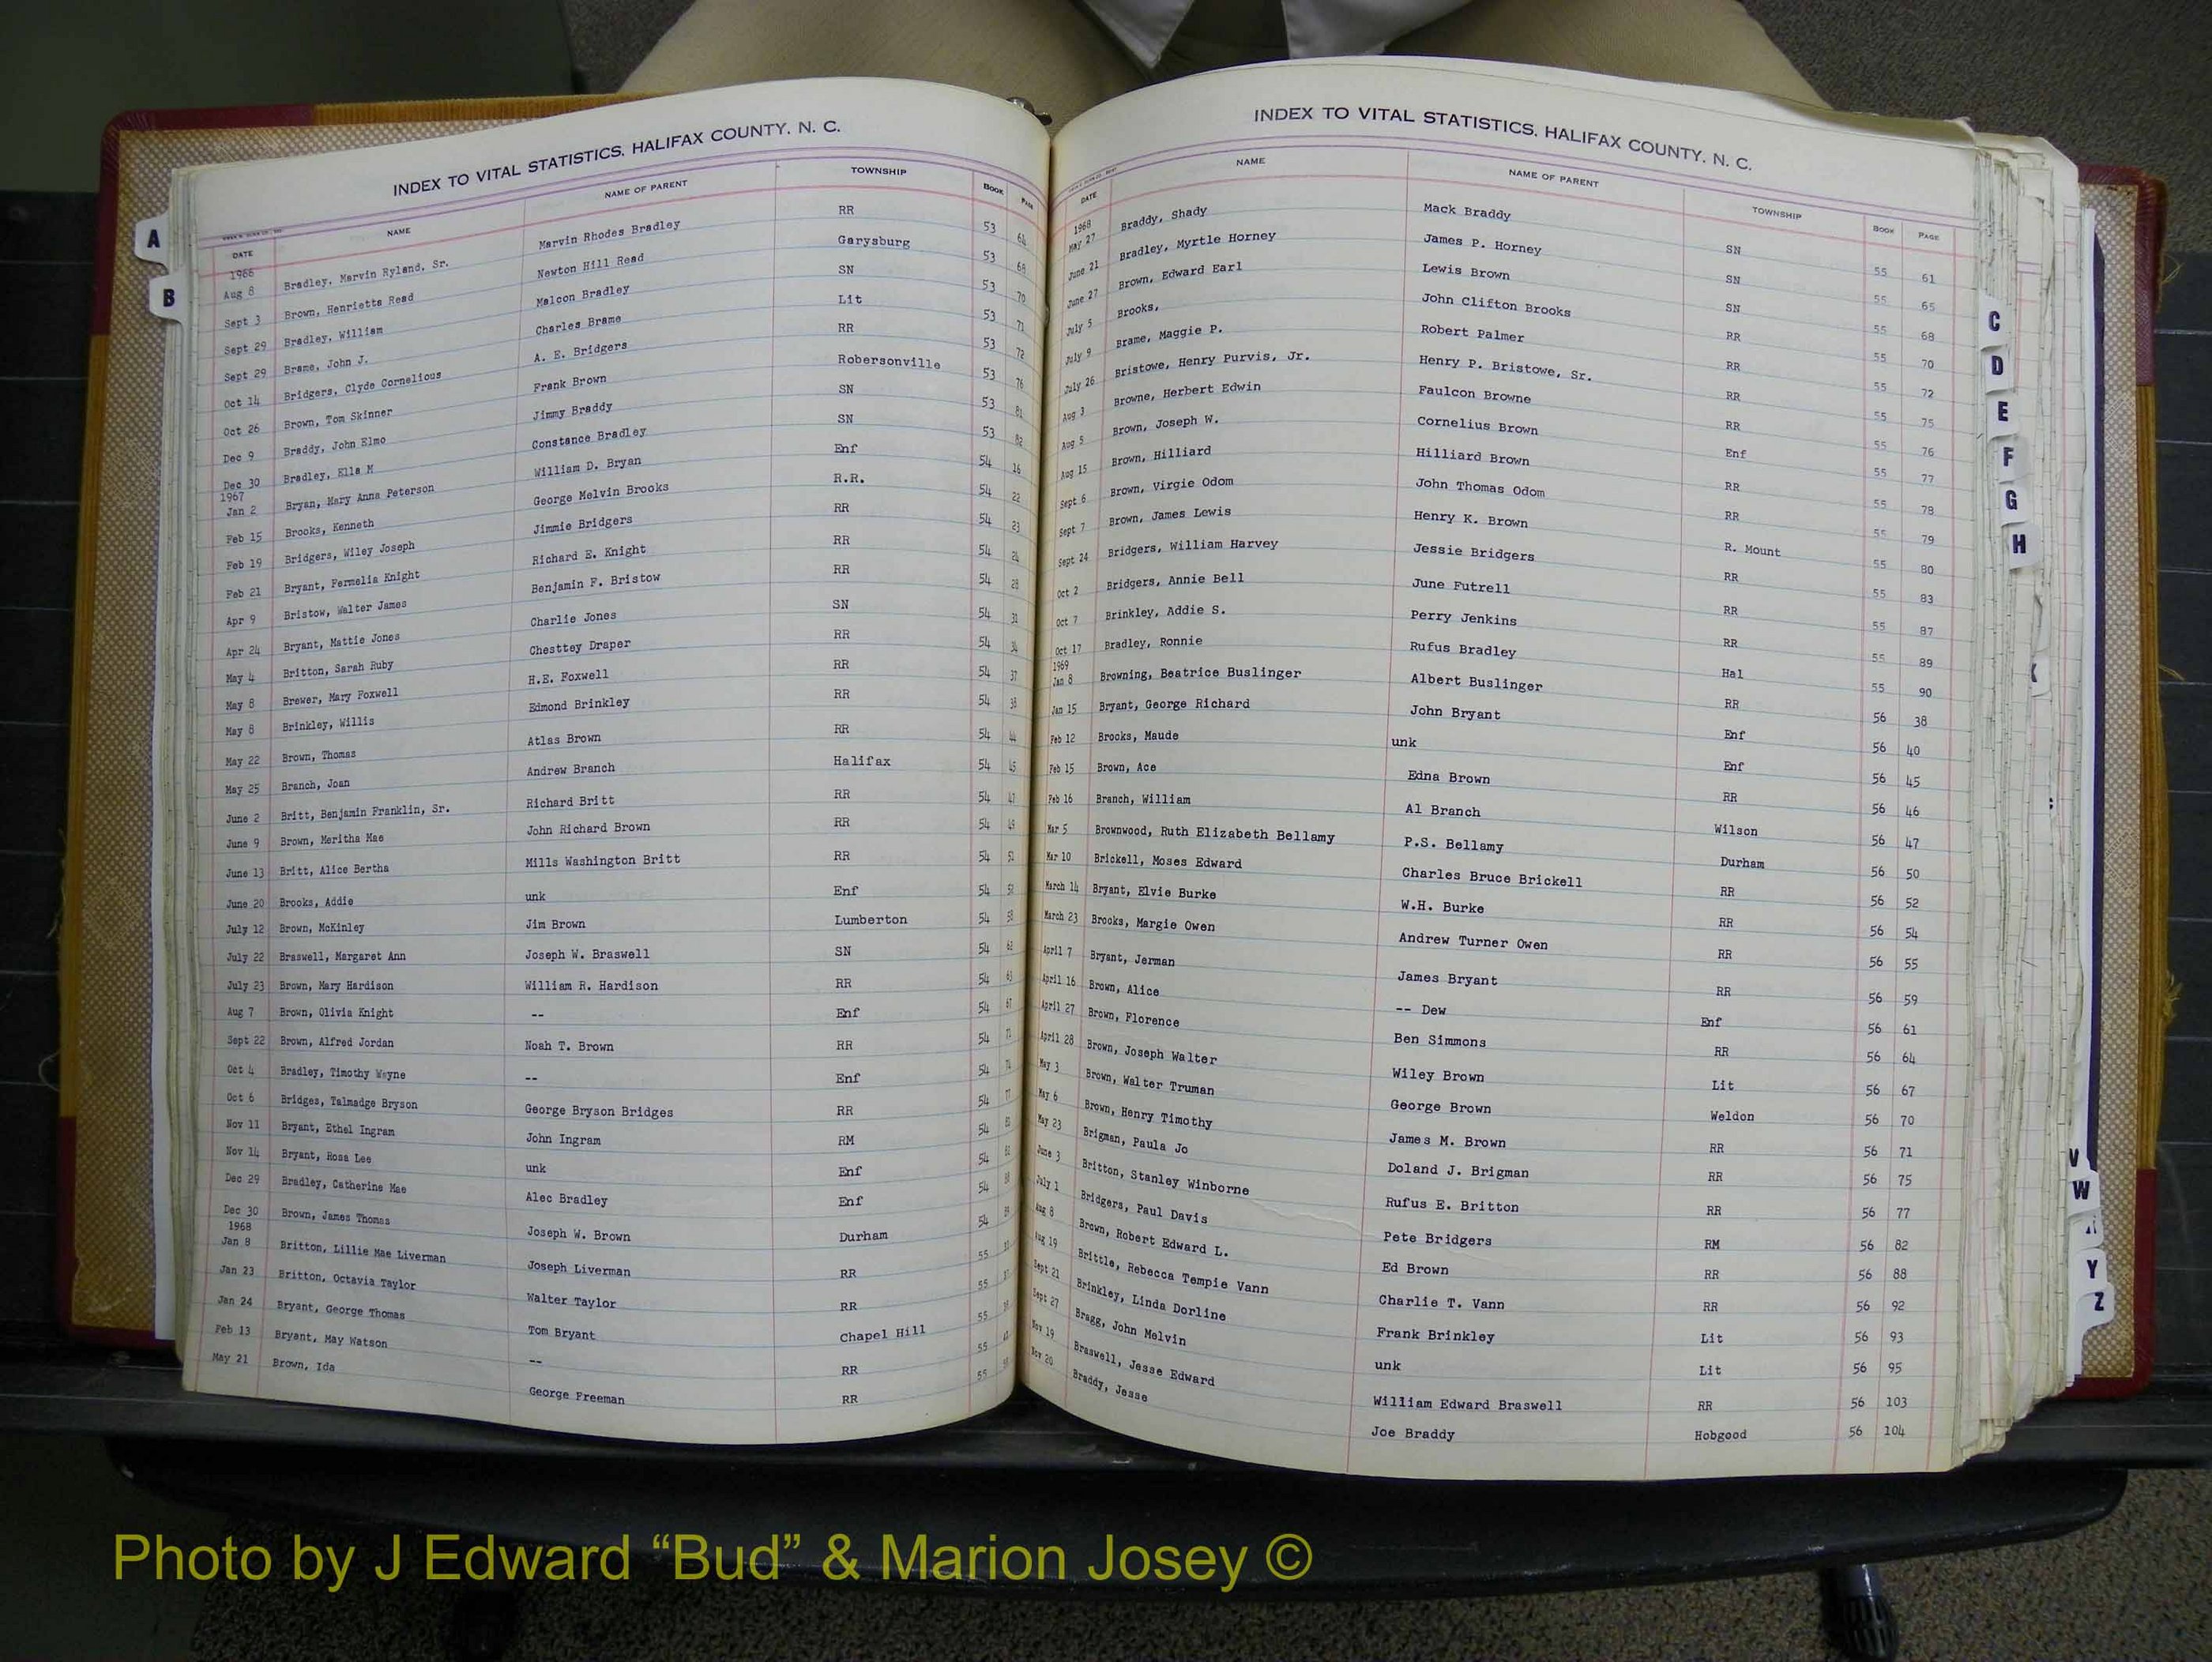 INDEX TO VITAL STATISTICS, HALIFAX COUNTY, N. C.
DATE NAME NAME OF PARENT TOWNSHIP BOOK PAGE
1966
Aug 8 Bradley, Marvin Ryland, Sr. Marvin Rhodes Bradley RR 53 64
Sept 3 Brown, Henrietta Read Newton Hill Read Garysburg 53 68
Sept 29 Bradley, William Malcon Bradley SN 53 70
Sept 29 Brame, John J. Charles Brame Lit 53 71
Oct 14 Bridgers, Clyde Cornelious A. E. Bridgers RR 53 72
Oct 26 Brown, Tom Skinner Frank Brown Robersonville 53 76
Dec 9 Braddy, John Elmo Jimmy Braddy SN 53 81
Dec 30 Bradley, Ella M Constance Bradley SN 53 82
1967
Jan 2 Bryan, Mary Anna Peterson William D. Bryan Enf 54 16
Feb 15 Brooks, Kenneth George Melvin Brooks R.R. 54 22
Feb 19 Bridgers, Wiley Joseph Jimmie Bridgers RR 54 23
Feb 21 Bryant, Fermelia Knight Richard E. Knight RR 54 24
Apr 9 Bristow, Walter James Benjamin F. Bristow RR 54 28
Apr 24 Bryant, Mattie Jones Charlie Jones SN 54
May 4 Britton, Sarah Ruby Chesttey Draper RR 54 34
May 8 Brewer, Mary Foxwell H.E. Foxwell RR 54 37
May 8 Brinkley, Willis Edmond Brinkley RR 54 38
May 22 Brown, Thomas Atlas Brown RR 54 44
May 25 Branch, Joan Andrew Branch Halifax 54 45
June 2 Britt, Benjamin Franklin, Sr. Richard Britt RR 54 47
June 9 Brown, Meritha Mae John Richard Brown RR 54 49
June 13 Britt, Alice Bertha Mills Washington Britt RR 54
June 20 Brooks, Addie unk Enf 54
July 12 Brown, McKinley Jim Brown Lumberton 54 58
July 22 Braswell, Margaret Ann Joseph W. Braswell SN 54 62
July 23 Brown, Mary Hardison William R. Hardison RR 54 63
Aug 7 Brown, Olivia Knight -- Enf 54 67
Sept 22 Brown, Alfred Jordan Noah T. Brown RR 54
Oct 4 Bradley, Timothy Wayne -- Enf 54
Oct 6 Bridges, Talmadge Bryson George Bryson Bridges RR 54
Nov 11 Bryant, Ethel Ingram John Ingram RM 54
Nov 14 Bryant, Rosa Lee unk Enf 54
Dec 29 Bradley, Catherine Mae Alec Bradley Enf 54
Dec 30 Brown, James Thomas Joseph W. Brown Durham 54
1968
Jan 8 Britton, Lillie Mae Liverman Joseph Liverman RR 55
Jan 23 Britton, Octavia Taylor Walter Taylor RR 55
Jan 24 Bryant, George Thomas Tom Bryant Chapel Hill 55
Feb 13 Bryant, May Watson -- RR 55
May 21 Brown, Ida George Freeman RR 55
INDEX TO VITAL STATISTICS, HALIFAX COUNTY, N. C.
DATE NAME NAME OF PARENT TOWNSHIP BOOK PAGE
1968
May 27 Braddy, Shady Mack Braddy SN 55 61
June 21 Bradley, Myrtle Horney James P. Horney SN 55 65
June 27 Brown, Edward Earl Lewis Brown SN 55 68
July 5 Brooks, John Clifton Brooks RR 55 70
July 9 Brame, Maggie P. Robert Palmer RR 55 72
July 26 Bristowe, Henry Purvis, Jr. Henry P. Bristowe, Sr. RR 55 75
Aug 3 Browne, Herbert Edwin Faulcon Browne RR 55 76
Aug 5 Brown, Joseph W. Cornelius Brown Enf 55 77
Aug 15 Brown, Hilliard Hilliard Brown RR 55 78
Sept 6 Brown, Virgie Odom John Thomas Odom RR 55 79
Sept 7 Brown, James Lewis Henry K. Brown R. Mount 55 80
Sept 24 Bridgers, William Harvey Jessie Bridgers RR 55 83
Oct 2 Bridgers, Annie Bell June Futrell RR 55 87
Oct 7 Brinkley, Addie S. Perry Jenkins RR 55 89
Oct 17 Bradley, Ronnie Rufus Bradley Hal 55 90
1969
Jan 8 Browning, Beatrice Buslinger Albert Buslinger RR 56 38
Jan 15 Bryant, George Richard John Bryant Enf 56 40
Feb 12 Brooks, Maude unk Enf 56 45
Feb 15 Brown, Ace Edna Brown RR 56 46
Feb 16 Branch, William Al Branch Wilson 56 47
Mar 5 Brownwood, Ruth Elizabeth Bellamy P.S. Bellamy Durham 56 50
Mar 10 Brickell, Moses Edward Charles Bruce Brickell RR 56 52
March 14 Bryant, Elvie Burke W.H. Burke RR 56 54
March 23 Brooks, Margie Owen Andrew Turner Owen RR 56 55
April 7 Bryant, Jerman James Bryant RR 56 59
April 16 Brown, Alice -- Dew Enf 56 61
April 27 Brown, Florence Ben Simmons RR 56 64
April 28 Brown, Joseph Walter Wiley Brown Lit 56 67
May 3 Brown, Walter Truman George Brown Weldon 56 70
May 6 Brown, Henry Timothy James M. Brown RR 56 71
May 23 Brigman, Paula Jo Doland J. Brigman RR 56 75
June 3 Britton, Stanley Winborne Rufus E. Britton RR 56 77
July 1 Bridgers, Paul Davis Pete Bridgers RM 56 82
Aug 8 Brown, Robert Edward L. Ed Brown RR 56 88
Aug 19 Brittle, Rebecca Tempie Vann Charlie T. Vann RR 56 92
Sept 21 Brinkley, Linda Dorline Frank Brinkley Lit 56 93
Sept 27 Bragg, John Melvin unk Lit 56 95
Nov 19 Braswell, Jesse Edward William Edward Braswell RR 56 103
Nov 20 Braddy, Jesse Joe Braddy Hobgood 56 104
A
B
C
D
E
F
G
H
V
W
Y
Z
Photo by J Edward “Bud” & Marion Josey ©